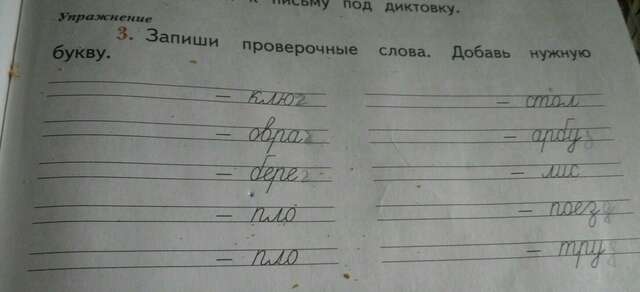 к письму под диктовку.
Упражнение
3. Запиши проверочные слова. Добавь нужную
букву.
– ключ – стол
– овраг – арбуз
– берег – лис
– пло – поезд
– пло – труд